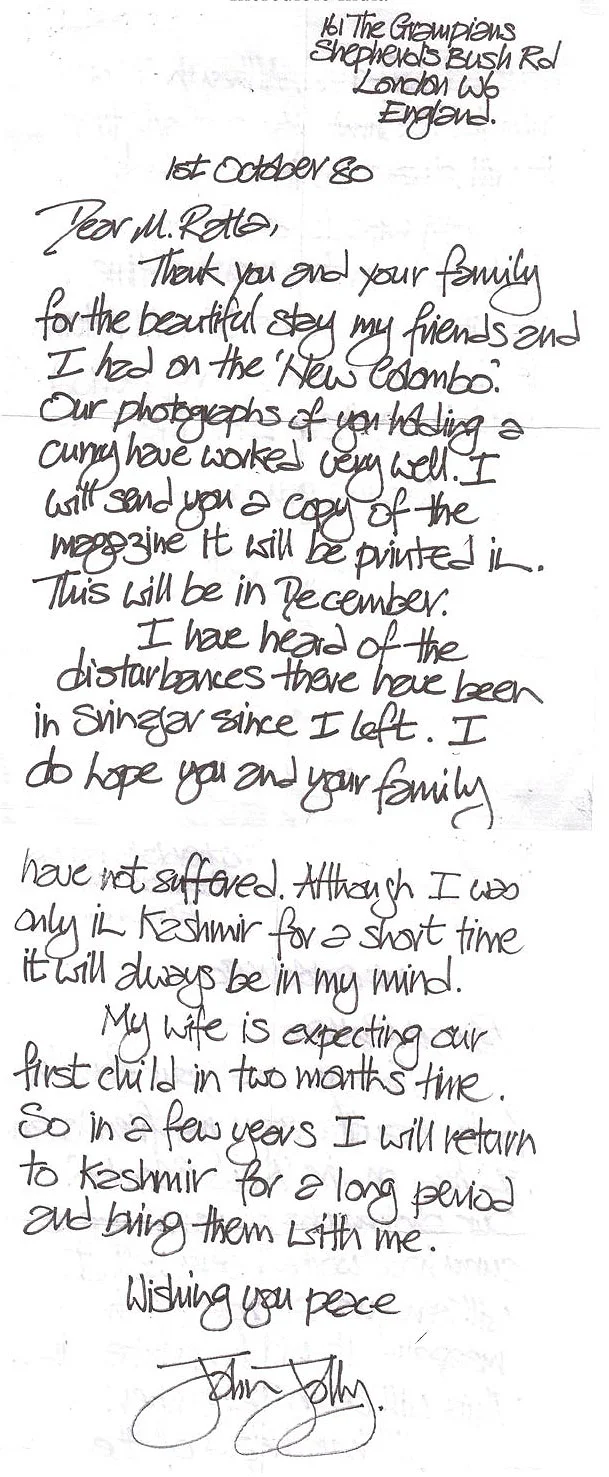 161 The Grampians
Shepherds Bush Rd
London W6
England.
1st October 80
Dear M. Ratta,
Thank you and your family
for the beautiful stay my friends and
I had on the 'New Colombo'.
Our photographs of you holding a
curry have worked very well. I
will send you a copy of the
magazine it will be printed in.
This will be in December.
I have heard of the
disturbances there have been
in Srinagar since I left. I
do hope you and your family
have not suffered. Although I was
only in Kashmir for a short time
it will always be in my mind.
My wife is expecting our
first child in two months time.
So in a few years I will return
to Kashmir for a long period
and bring them with me.
Wishing you peace
John Jolly.